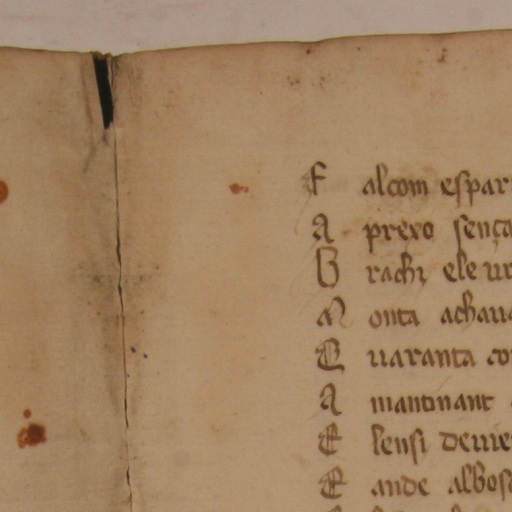 F alcom espar
A prexo sença
B rachi ele ur
M onta achaua
Q uaranta co
A mantinant
E lensi deuie
E ande albos